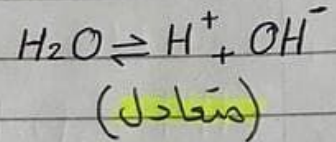 H₂O ⇌ H⁺ + OH⁻
(متعادل)